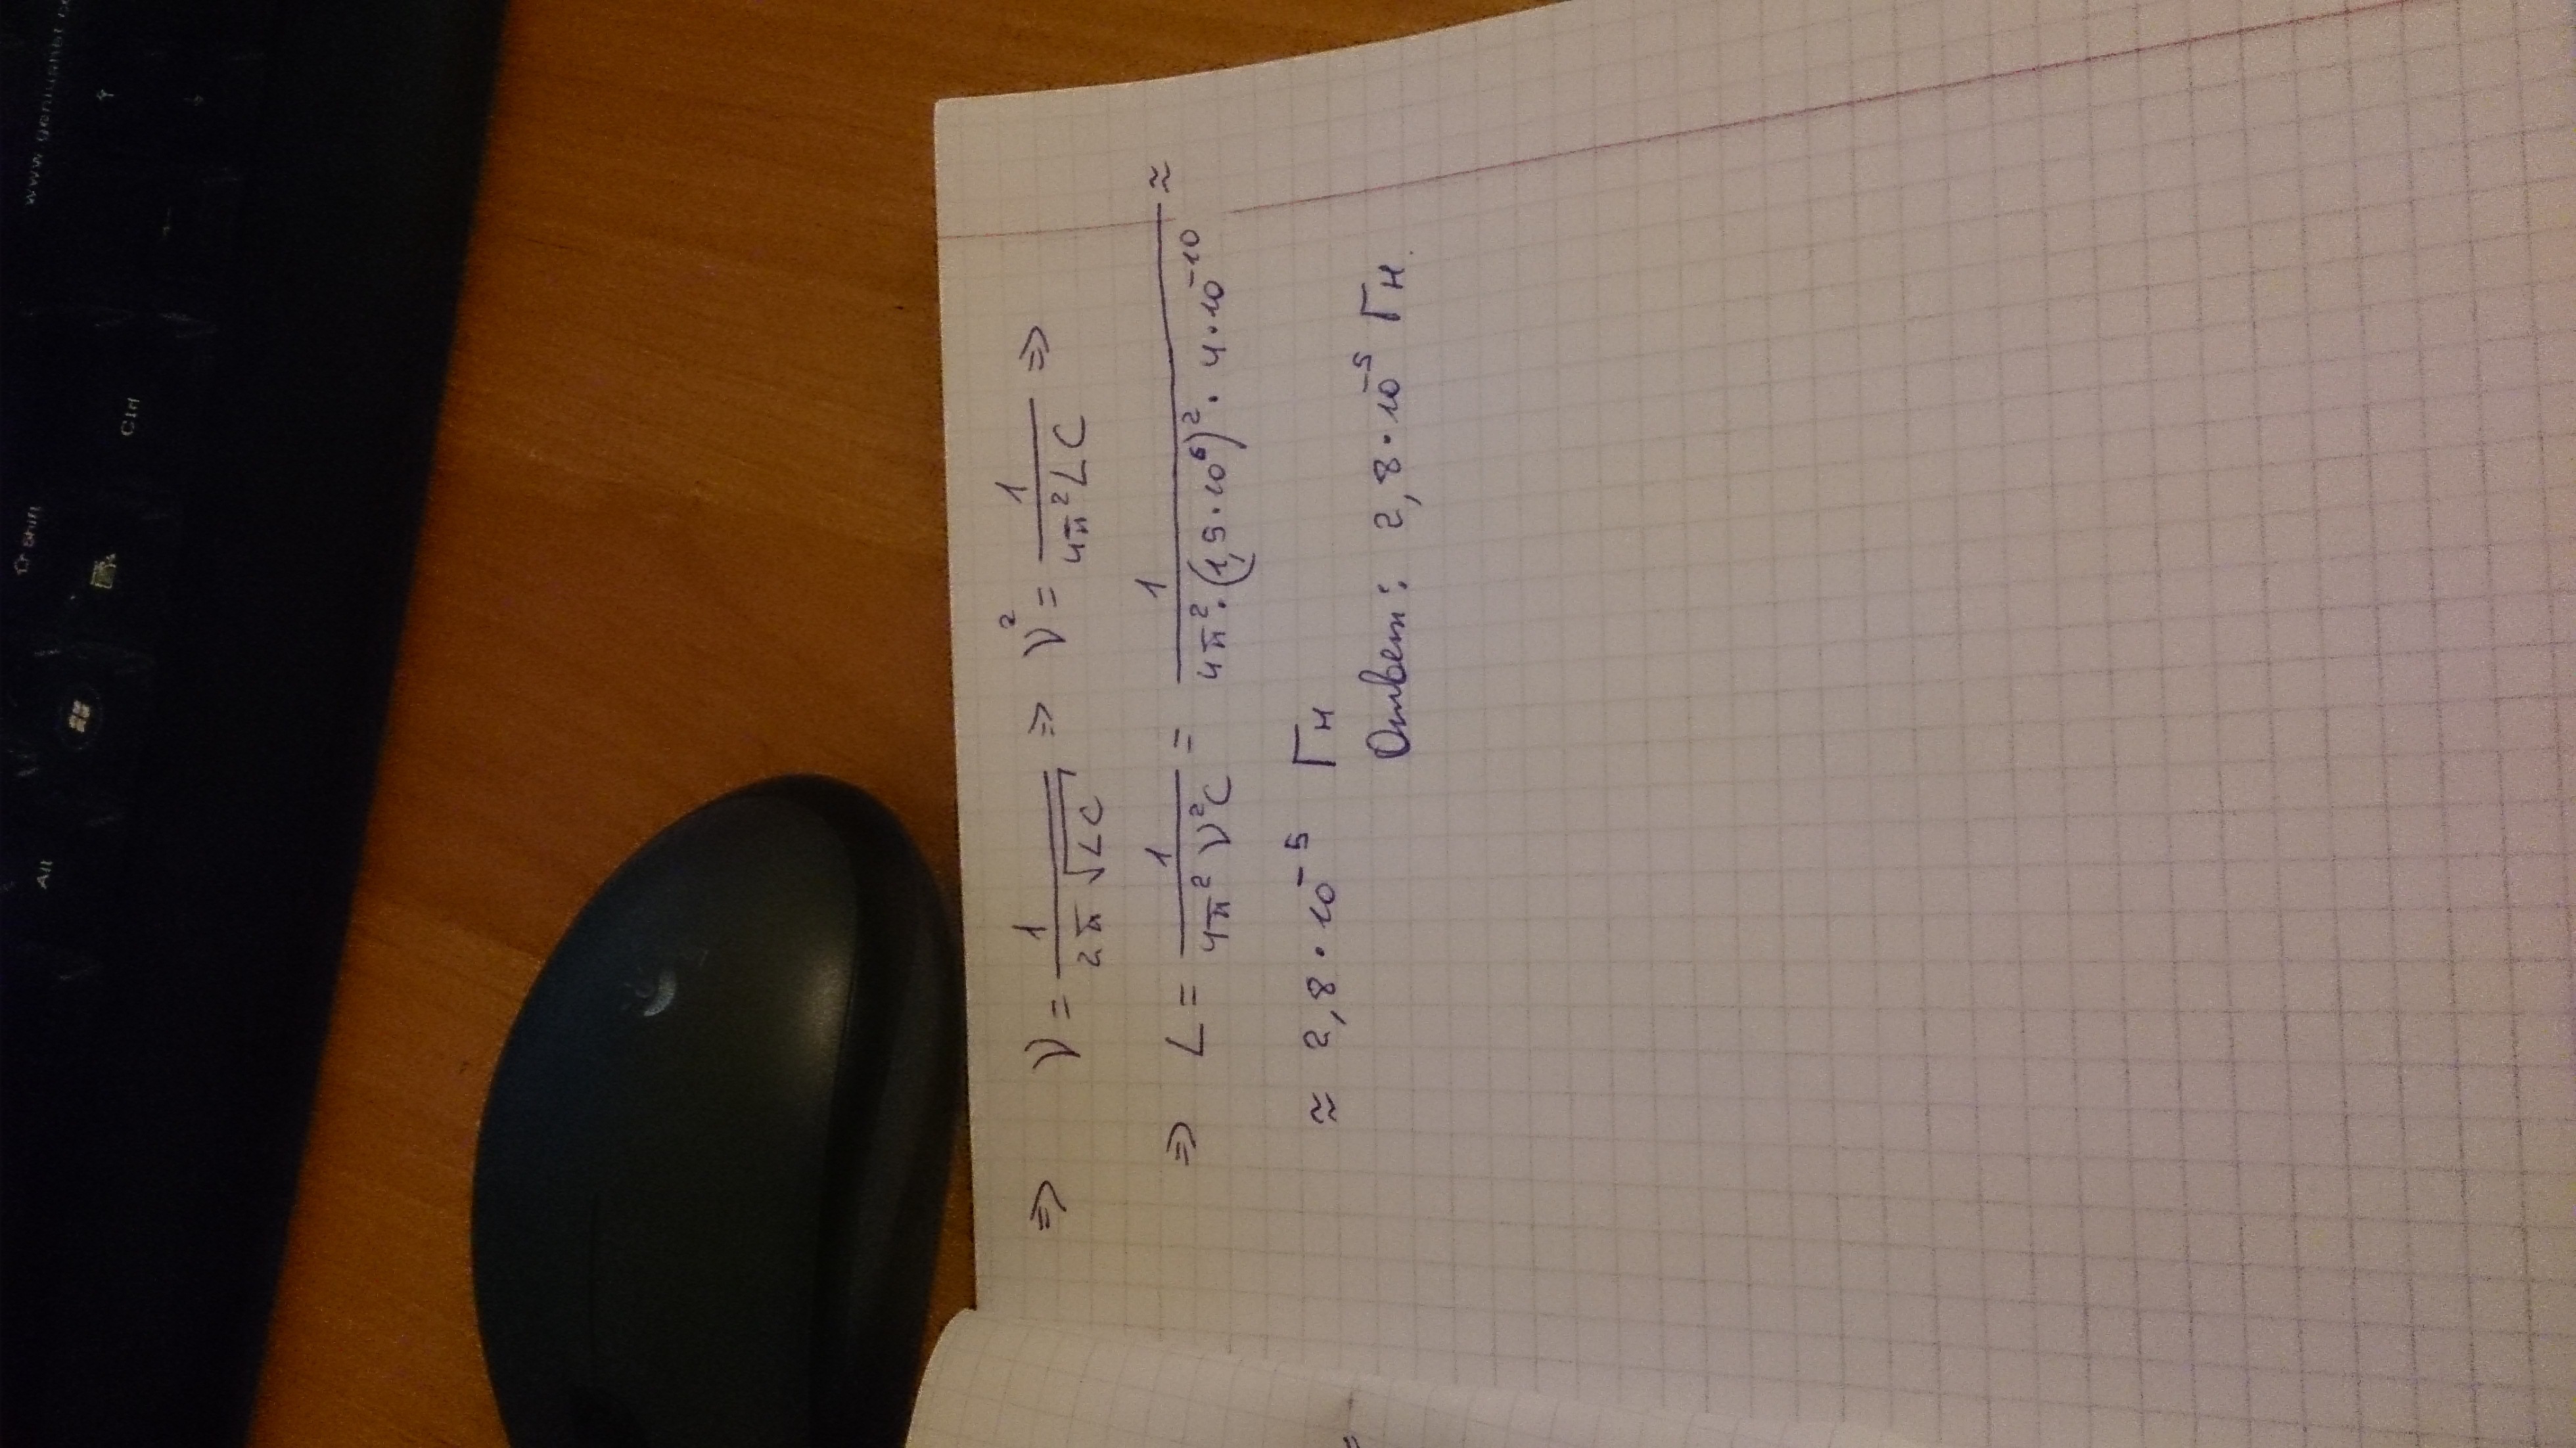 ⇒ ν = 1/(2π√LC) ⇒ ν² = 1/(4π²LC) ⇒
⇒ L = 1/(4π²ν²C) = 1/(4π²·(1,5·10⁶)²·4·10⁻¹⁰) ≈
≈ 2,8·10⁻⁵ Гн
Ответ: 2,8·10⁻⁵ Гн.
Alt
Shift
Ctrl